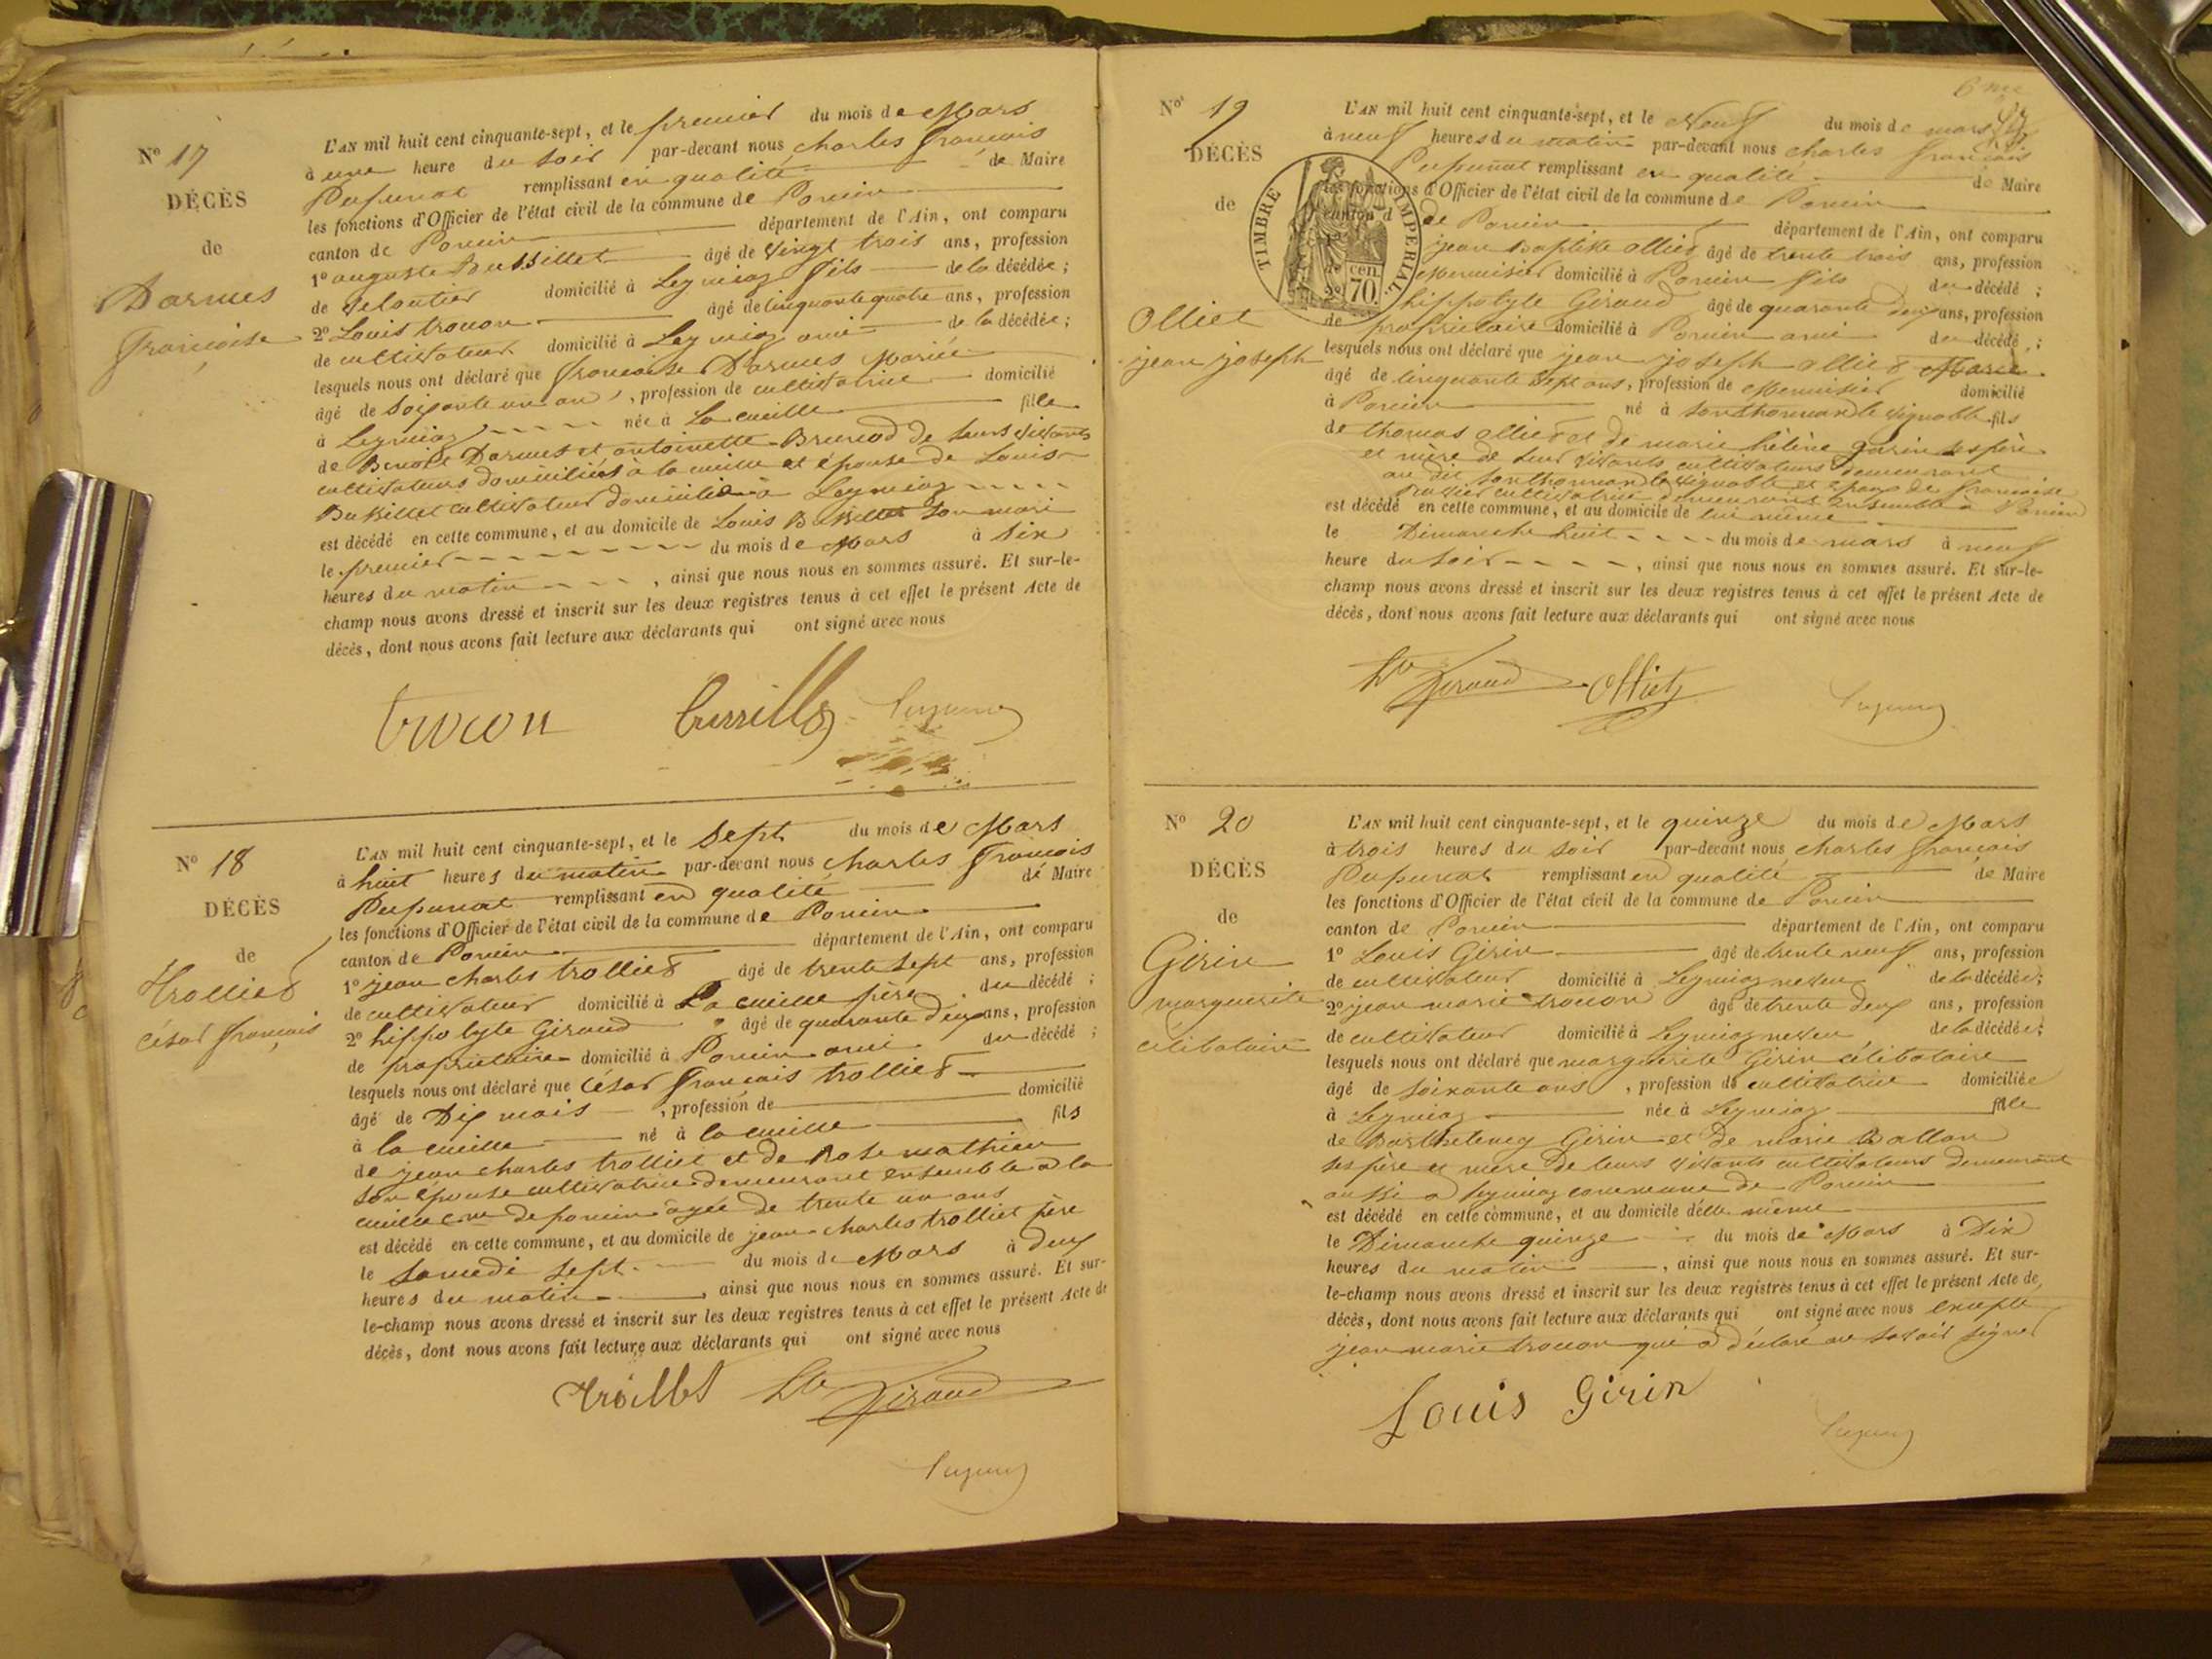 N° 17
DÉCÈS
de
Darmes
françoise
L'AN mil huit cent cinquante-sept, et le premier du mois de Mars
à une heure du soir par-devant nous charles françois
Pupunat remplissant en qualité de Maire
les fonctions d'Officier de l'état civil de la commune de Poncin
canton de Poncin département de l'Ain, ont comparu
1° auguste Bussillet âgé de vingt trois ans, profession
de veloutier domicilié à Leymiaz fils de la décédée;
2° Louis trocon âgé de cinquante quatre ans, profession
de cultivateur domicilié à Leymiaz ami de la décédée;
lesquels nous ont déclaré que françoise Darmes Mariée
âgé de soixante un ans, profession de cultivatrice domicilié
à Leymiaz née à La cueille fille
de Benoit Darmes et antoinette Brunod de leurs vivants
cultivateurs domiciliés à la cueille et épouse de Louis
Bussillet cultivateur domicilié à Leymiaz
est décédé en cette commune, et au domicile de Louis Bussillet son mari
le premier du mois de Mars à dix
heures du matin, ainsi que nous nous en sommes assuré. Et sur-le-
champ nous avons dressé et inscrit sur les deux registres tenus à cet effet le présent Acte de
décès, dont nous avons fait lecture aux déclarants qui ont signé avec nous
trocon Bussillet Pupunat
N° 18
DÉCÈS
de
Trolliet
césar françois
L'AN mil huit cent cinquante-sept, et le Sept du mois de Mars
à huit heures du matin par-devant nous charles françois
Pupunat remplissant en qualité de Maire
les fonctions d'Officier de l'état civil de la commune de Poncin
canton de Poncin département de l'Ain, ont comparu
1° jean charles trolliet âgé de trente sept ans, profession
de cultivateur domicilié à La cueille père du décédé;
2° hippolyte Giraud âgé de quarante deux ans, profession
de propriétaire domicilié à Poncin ami du décédé;
lesquels nous ont déclaré que César françois trolliet
âgé de Dix mois, profession de domicilié
à la cueille né à la cueille fils
de jean charles trolliet et de Rose mathieu
son épouse cultivatrice demeurant ensemble à la
cueille cne de poncin agée de trente un ans
est décédé en cette commune, et au domicile de jean charles trolliet père
le samedi sept du mois de Mars à deux
heures du matin, ainsi que nous nous en sommes assuré. Et sur-
le-champ nous avons dressé et inscrit sur les deux registres tenus à cet effet le présent Acte de
décès, dont nous avons fait lecture aux déclarants qui ont signé avec nous
trolliet hte Giraud
Pupunat
6me
N° 19
DÉCÈS
de
Olliet
jean joseph
TIMBRE IMPERIAL
cen.
70.
L'AN mil huit cent cinquante-sept, et le Neuf du mois de mars
à neuf heures du matin par-devant nous charles françois
Pupunat remplissant en qualité de Maire
les fonctions d'Officier de l'état civil de la commune de Poncin
canton de Poncin département de l'Ain, ont comparu
jean Baptiste olliet âgé de trente trois ans, profession
Menuisier domicilié à Poncin fils du décédé;
2° hippolyte Giraud âgé de quarante deux ans, profession
de propriétaire domicilié à Poncin ami du décédé;
lesquels nous ont déclaré que jean joseph olliet Marié
âgé de cinquante sept ans, profession de Menuisier domicilié
à Poncin né à Sonthonnax le vignoble fils
de thomas olliet et de marie hélène garin ses père
et mère de leur vivants cultivateurs demeurant
au dit Sonthonnax le vignoble et époux de françoise
cultivatrice demeurant ensemble à Poncin
est décédé en cette commune, et au domicile de lui même
le Dimanche huit du mois de mars à neuf
heure du soir, ainsi que nous nous en sommes assuré. Et sur-le-
champ nous avons dressé et inscrit sur les deux registres tenus à cet effet le présent Acte de
décès, dont nous avons fait lecture aux déclarants qui ont signé avec nous
hte Giraud Olliet Pupunat
N° 20
DÉCÈS
de
Girin
marguerite
célibataire
L'AN mil huit cent cinquante-sept, et le quinze du mois de Mars
à trois heures du soir par-devant nous charles françois
Pupunat remplissant en qualité de Maire
les fonctions d'Officier de l'état civil de la commune de Poncin
canton de Poncin département de l'Ain, ont comparu
1° Louis Girin âgé de trente neuf ans, profession
de cultivateur domicilié à Leymiaz neveu de la décédée;
2° jean marie trocon âgé de trente deux ans, profession
de cultivateur domicilié à Leymiaz neveu de la décédée;
lesquels nous ont déclaré que marguerite Girin célibataire
âgé de soixante ans, profession de cultivatrice domiciliée
à Leymiaz née à Leymiaz fille
de Barthelemy Girin et de marie Ballan
ses père et mère de leurs vivants cultivateurs demeurant
aussi à leymiaz commune de Poncin
est décédé en cette commune, et au domicile d'elle même
le Dimanche quinze du mois de Mars à Dix
heures du matin, ainsi que nous nous en sommes assuré. Et sur-
le-champ nous avons dressé et inscrit sur les deux registres tenus à cet effet le présent Acte de
décès, dont nous avons fait lecture aux déclarants qui ont signé avec nous excepté
jean marie trocon qui a déclaré ne savoir signer
Louis Girin
Pupunat